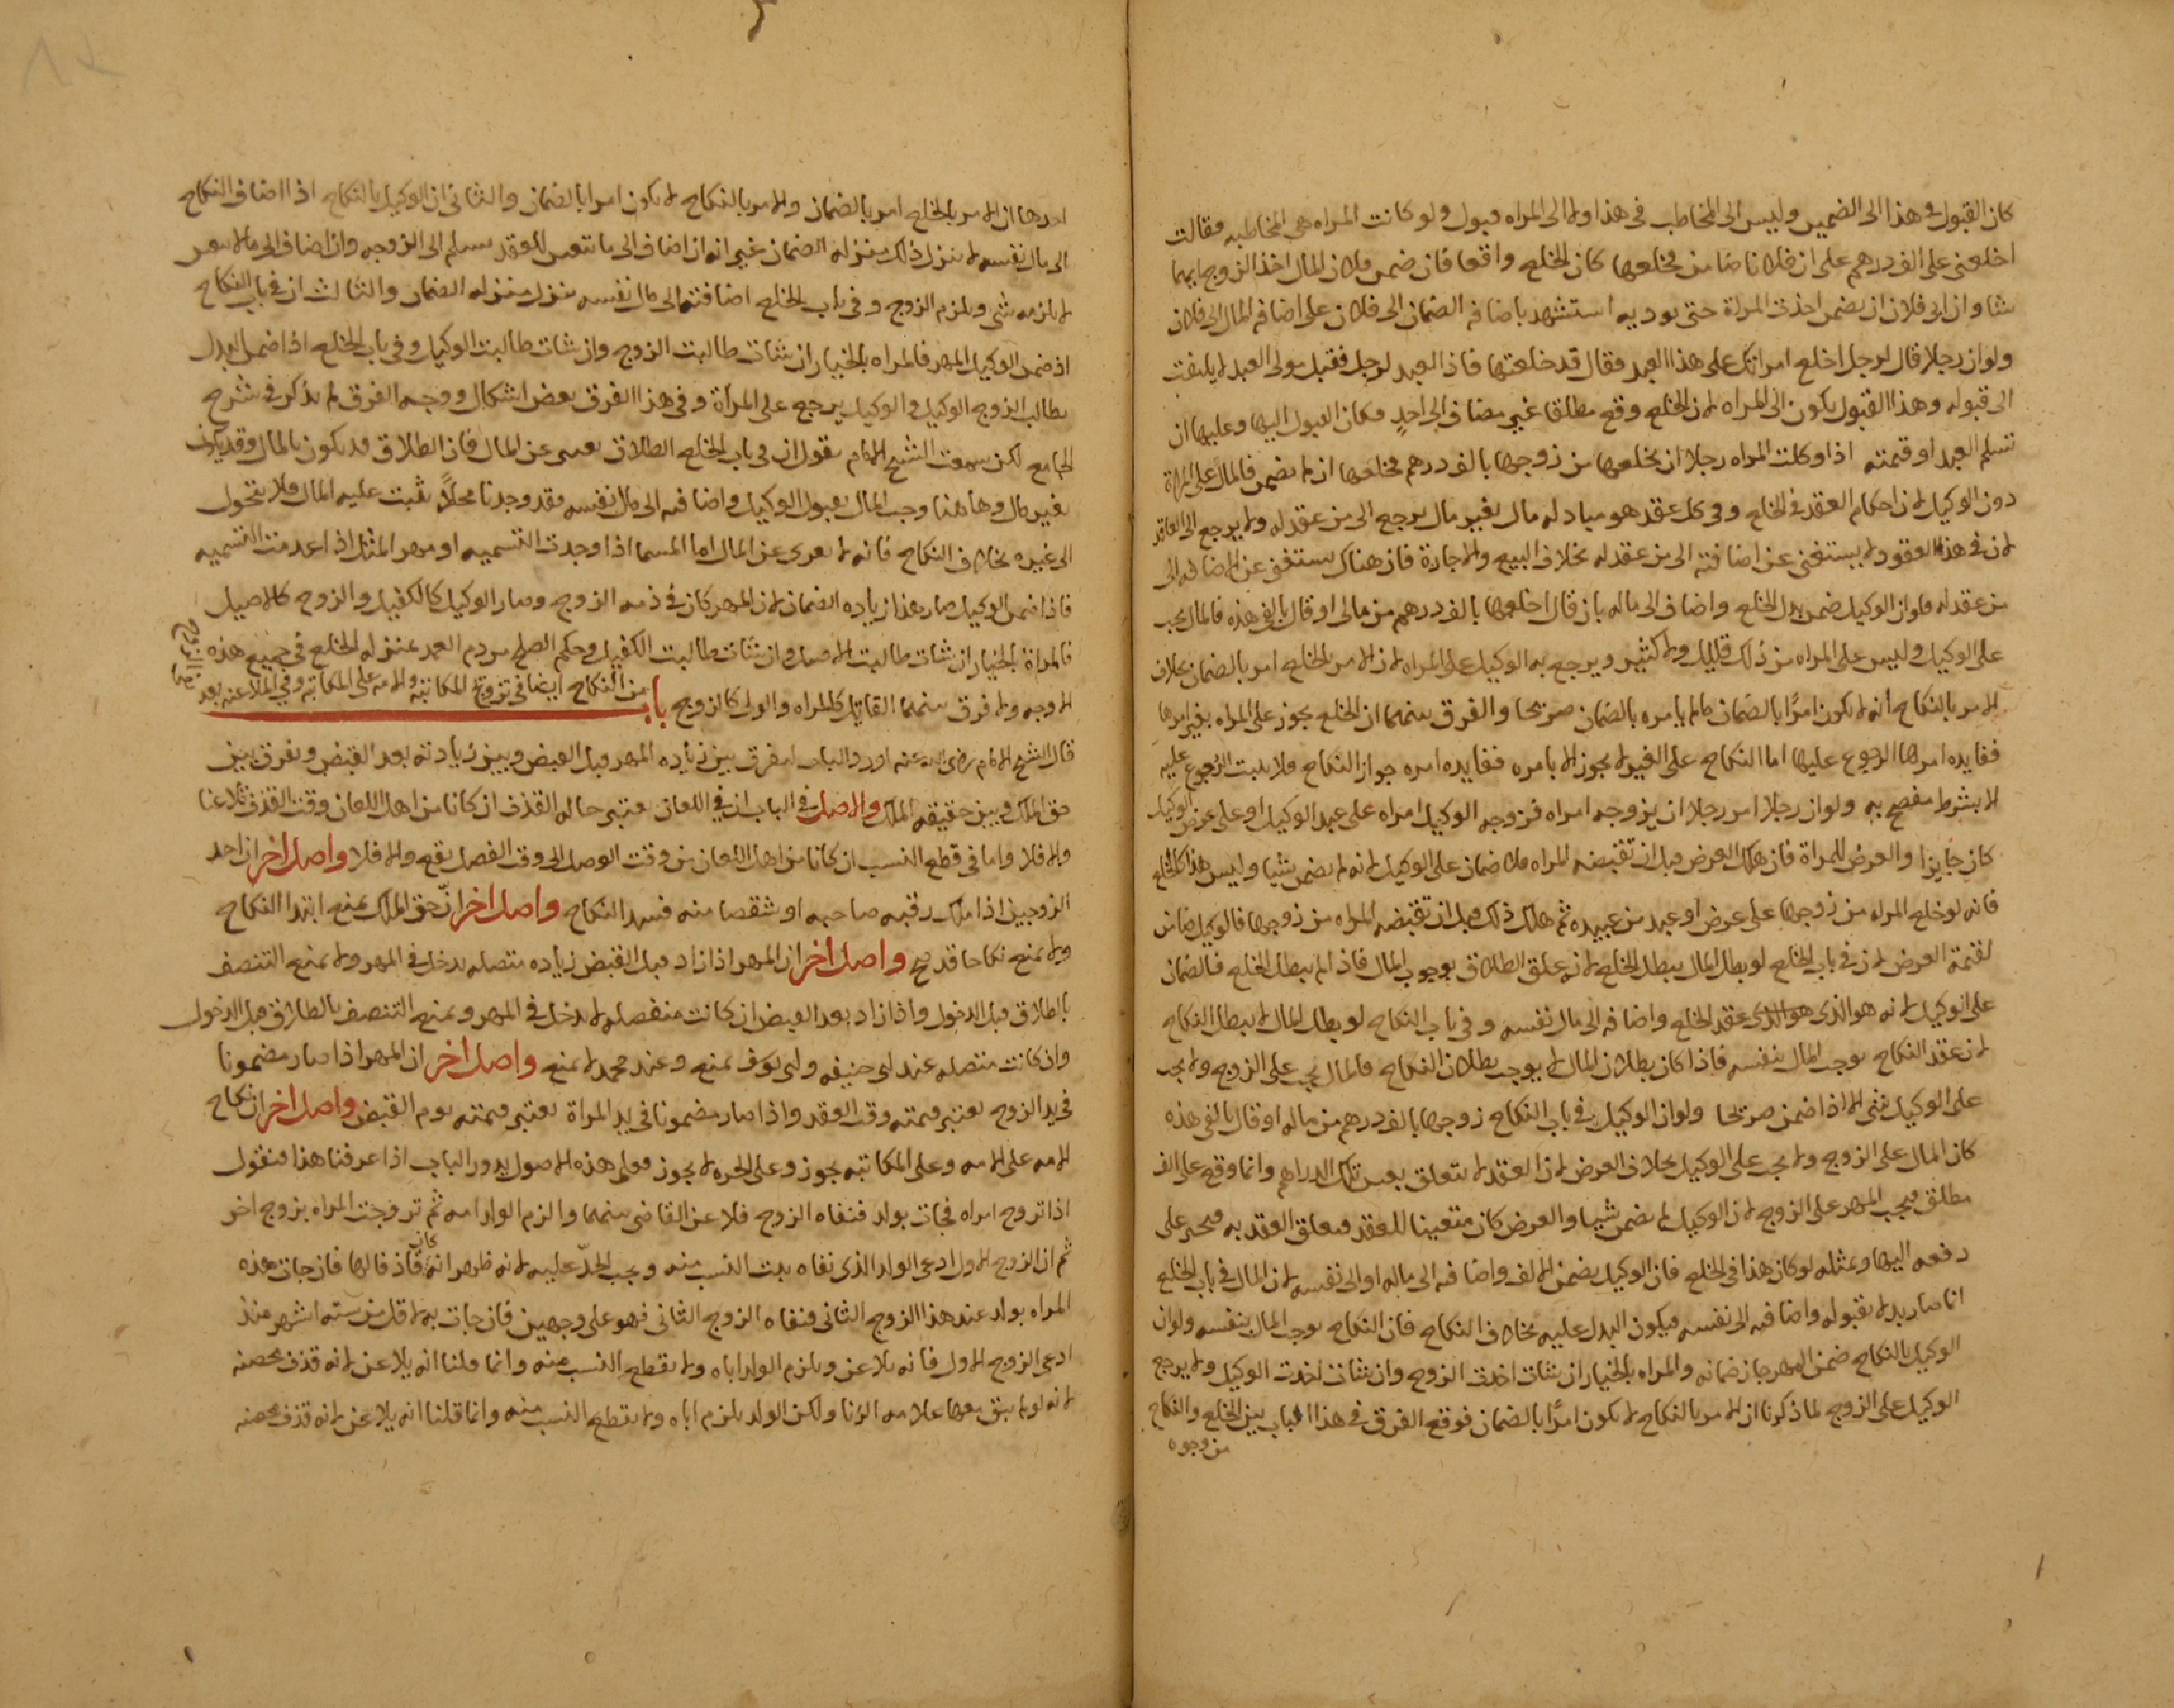 كان القبول في هذا الى الضمين وليس الى المخاطب في هذا ولا الى المراه قبول ولو كانت المراه هي المخاطبه فقالت
اخلعني على الف درهم على ان فلانا ضامن فخلعها كان الخلع واقعا فان ضمن فلان المال اخذ الزوج ايهما
شا وان ابى فلان ان يضمن اخذت المراة حتى توديه استشهد باضافه الضمان الى فلان على اضافه المال الى فلان
ولو ان رجلا قال لرجل اخلع امراتك على هذا العبد فقال قد خلعتها فاذا العبد لرجل فقبل مولى العبد لا يلتفت
الى قبوله وهذا القبول يكون الى المراه لان الخلع وقع مطلقا غير مضاف الى احدٍ فكان القبول اليها وعليها ان
تسلم العبد او قيمته اذا وكلت المراه رجلا ان يخلعها من زوجها بالف درهم فخلعها ان لم يضمن فالمال على المراة
دون الوكيل لان احكام العقد في الخلع وفي كل عقد هو مبادله مال بغير مال يرجع الى من عقد له ولا يرجع الى العاقد
لان في هذه العقود لا يستغنى عن اضافته الى من عقد له بخلاف البيع والاجارة فان هناك يستغنى عن الاضافه الى
من عقد له فلو ان الوكيل ضمن بدل الخلع واضاف الى ماله بان قال اخلعها بالف درهم من مالي او قال بالفي هذه فالمال يجب
على الوكيل وليس على المراه من ذلك قليل ولا كثير ويرجع به الوكيل على المراه لان الامر بالخلع امر بالضمان بخلاف
الامر بالنكاح انه لا يكون امرًا بالضمان مالم يامره بالضمان صريحا والفرق بينهما ان الخلع يجوز على المراه بغير امرها
ففايده امرها الرجوع عليها اما النكاح على الغير لا يجوز الا بامره ففايده امره جواز النكاح فلا يثبت الرجوع عليه
الا بشرط مفصح به ولو ان رجلا امر رجلا ان يزوجه امراه فزوجه الوكيل امراه على عبد الوكيل او على عرض الوكيل
كان جايزا والعرض للمراة فان هلك العرض قبل ان تقبضه المراه فلا ضمان على الوكيل لانه لم يضمن شيا وليس هذا كالخلع
فانه لو خلع المراه من زوجها على عرض او عبد من عبيده ثم هلك ذلك قبل ان تقبضه المراه من زوجها فالوكيل ضامن
لقيمة العرض لان في باب الخلع لو بطل المال يبطل الخلع لانه علق الطلاق بوجوب المال فاذا لم يبطل الخلع فالضمان
على الوكيل لانه هو الذي هو الذي عقد الخلع واضافه الى مال نفسه وفي باب النكاح لو بطل المال لا يبطل النكاح
لان عقد النكاح يوجب المال بنفسه فاذا كان بطلان المال لا يوجب بطلان النكاح فالمال يجب على الزوج ولا يجب
على الوكيل شى الا اذا ضمن صريحا ولو ان الوكيل في باب النكاح زوجها بالف درهم من ماله او قال بالفي هذه
كان المال على الزوج ولا يجب على الوكيل بخلاف العرض لان العقد لا يتعلق بعين تلك الدراهم وانما وقع على الف
مطلق فيجب المهر على الزوج لان الوكيل لم يضمن شيا والعرض كان متعينا للعقد فتعلق العقد به فيجبر على
دفعه اليها وبمثله لو كان هذا في الخلع فان الوكيل يضمن الالف واضافه الى ماله او الى نفسه لان المال في باب الخلع
انما صار بدلا بقبوله واضافه الى نفسه فيكون البدل عليه بخلاف النكاح فان النكاح يوجب المال بنفسه ولو ان
الوكيل بالنكاح ضمن المهر جاز ضمانه والمراه بالخيار ان شات اخذت الزوج وان شات اخذت الوكيل ولا يرجع
الوكيل على الزوج لما ذكرنا ان الامر بالنكاح لا يكون امرًا بالضمان فوقع الفرق في هذا الباب بين الخلع والنكاح
من وجوه
احدها ان الامر بالخلع امر بالضمان والامر بالنكاح لا يكون امرا بالضمان والثاني ان الوكيل بالنكاح اذا اضاف النكاح
الى مال نفسه لا ينزل ذلك منزله الضمان غير انه ان اضاف الى ما يتعين للعقد يسلم الى الزوجه وان اضاف الى ما لا يتعين
لا يلزمه شي ويلزم الزوج وفي باب الخلع اضافته الى مال نفسه ينزل منزله الضمان والثالث ان في باب النكاح
اذ ضمن الوكيل المهر فالمراه بالخيار ان شات طالبت الزوج وان شات طالبت الوكيل وفي باب الخلع اذا ضمن البدل
يطالب الزوج الوكيل والوكيل يرجع على المراة وفي هذا الفرق بعض اشكال ووجه الفرق لم يذكر في شرح
الجامع لكن سمعت الشيخ الامام يقول ان في باب الخلع الطلاق يعرى عن المال فان الطلاق قد يكون بالمال وقد يكون
بغير مال وهاهنا وجب المال بقبول الوكيل واضافه الى مال نفسه فقد وجدنا محلاً يثبت عليه المال فلا يتحول
الى غيره بخلاف النكاح فانه لا يعرى عن المال اما المسما اذا وجدت التسميه او مهر المثل اذا عدمت التسميه
فاذا ضمن الوكيل صار هذا زياده الضمان لان المهر كان في ذمه الزوج وصار الوكيل كالكفيل والزوج كالاصيل
فالمراة بالخيار ان شات طالبت الاصيل وان شات طالبت الكفيل وحكم الصلح من دم العمد بمنزله الخلع في جميع هذه
الاوجه ولا فرق بينهما القاتل كالمراه والولي كالزوج باب من النكاح ايضا في تزويج المكاتبه والامه على المكاتبه وفي الملاعنه بعد
قال الشيخ الامام رضي الله عنه اورد الباب ليفرق بين زياده المهر قبل القبض وبين زيادته بعد القبض ويفرق بين
حق الملك وبين حقيقه الملك والاصل في الباب ان في اللعان يعتبر حاله القذف ان كانا من اهل اللعان وقت القذف تلاعنا
والا فلا واما في قطع النسب ان كانا من اهل اللعان من وقت الوصل الى وقت الفصل يقع والا فلا واصل اخر ان احد
الزوجين اذا ملك رقبه صاحبه او شقصا منه فسد النكاح واصل اخر انّ حق الملك يمنع ابتدا النكاح
ولا يمنع نكاحا قد صح واصل اخر ان المهر اذا زاد قبل القبض زياده متصله يدخل في المهر ولا يمنع التنصف
بالطلاق قبل الدخول واذا زاد بعد القبض ان كانت منفصله لا يدخل في المهر ويمنع التنصف بالطلاق قبل الدخول
وان كانت متصله عند ابي حنيفه وابي يوسف يمنع وعند محمد لا يمنع واصل اخر ان المهر اذا صار مضمونا
في يد الزوج يعتبر قيمته وقت العقد واذا صار مضمونا في يد المراة يعتبر قيمته يوم القبض واصل اخر ان نكاح
الامه على الامه وعلى المكاتبه يجوز وعلى الحره لا يجوز فعلى هذه الاصول يدور الباب اذا عرفنا هذا فنقول
اذا تزوج امراه فجات بولد فنفاه الزوج فلاعن القاضي بينهما والزم الولد امه ثم تزوجت المراه بزوج اخر
ثم ان الزوج الاول ادعى الولد الذي نفاه يثبت النسب منه ويجب الحدّ عليه لانه ظهر انه كان قاذفا لها فان جات هذه
المراه بولد عند هذا الزوج الثاني فنفاه الزوج الثاني فهو على وجهين فان جات به لاقل من سته اشهر منذ
ادعى الزوج الاول فانه يلاعن ويلزم الولد اباه ولا يقطع النسب منه وانما قلنا انه يلاعن لانه قذف محصنه
لانه لم يبق معها علامه الزنا ولكن الولد يلزم اباه ولا يقطع النسب منه وانما قلنا انه يلاعن لانه قذف محصنه